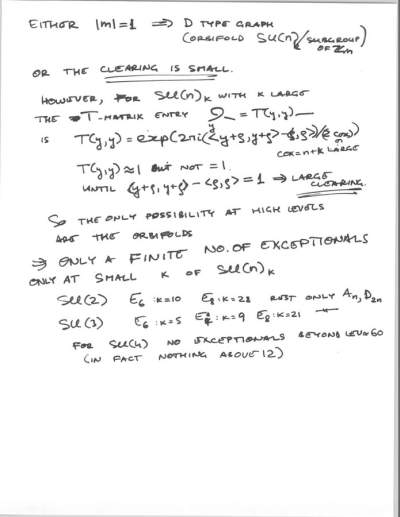 EITHER |m|=1 ⟹ D TYPE GRAPH
(ORBIFOLD SU(n)/SUBGROUP OF Zn)
OR THE CLEARING IS SMALL.
HOWEVER, FOR SU(n)k WITH K LARGE
THE T-MATRIX ENTRY = T(y,y)—
IS T(y,y) = exp(2πi(<y+ρ,y+ρ>-<ρ,ρ>)/2 cox)
COX=n+k LARGE
T(y,y)≈1 BUT NOT =1.
UNTIL <y+ρ,y+ρ> - <ρ,ρ> = 1 ⟹ LARGE
CLEARING.
SO THE ONLY POSSIBILITY AT HIGH LEVELS
ARE THE ORBIFOLDS
⟹ ONLY A FINITE NO. OF EXCEPTIONALS
ONLY AT SMALL K OF SU(n)k
SU(2) E6 : K=10 E8 : K=28 REST ONLY An, D2n
SU(3) E6 : K=5 K=9 E8 : K=21 —"—
FOR SU(4) NO EXCEPTIONALS BEYOND 60
(IN FACT NOTHING ABOVE 12)